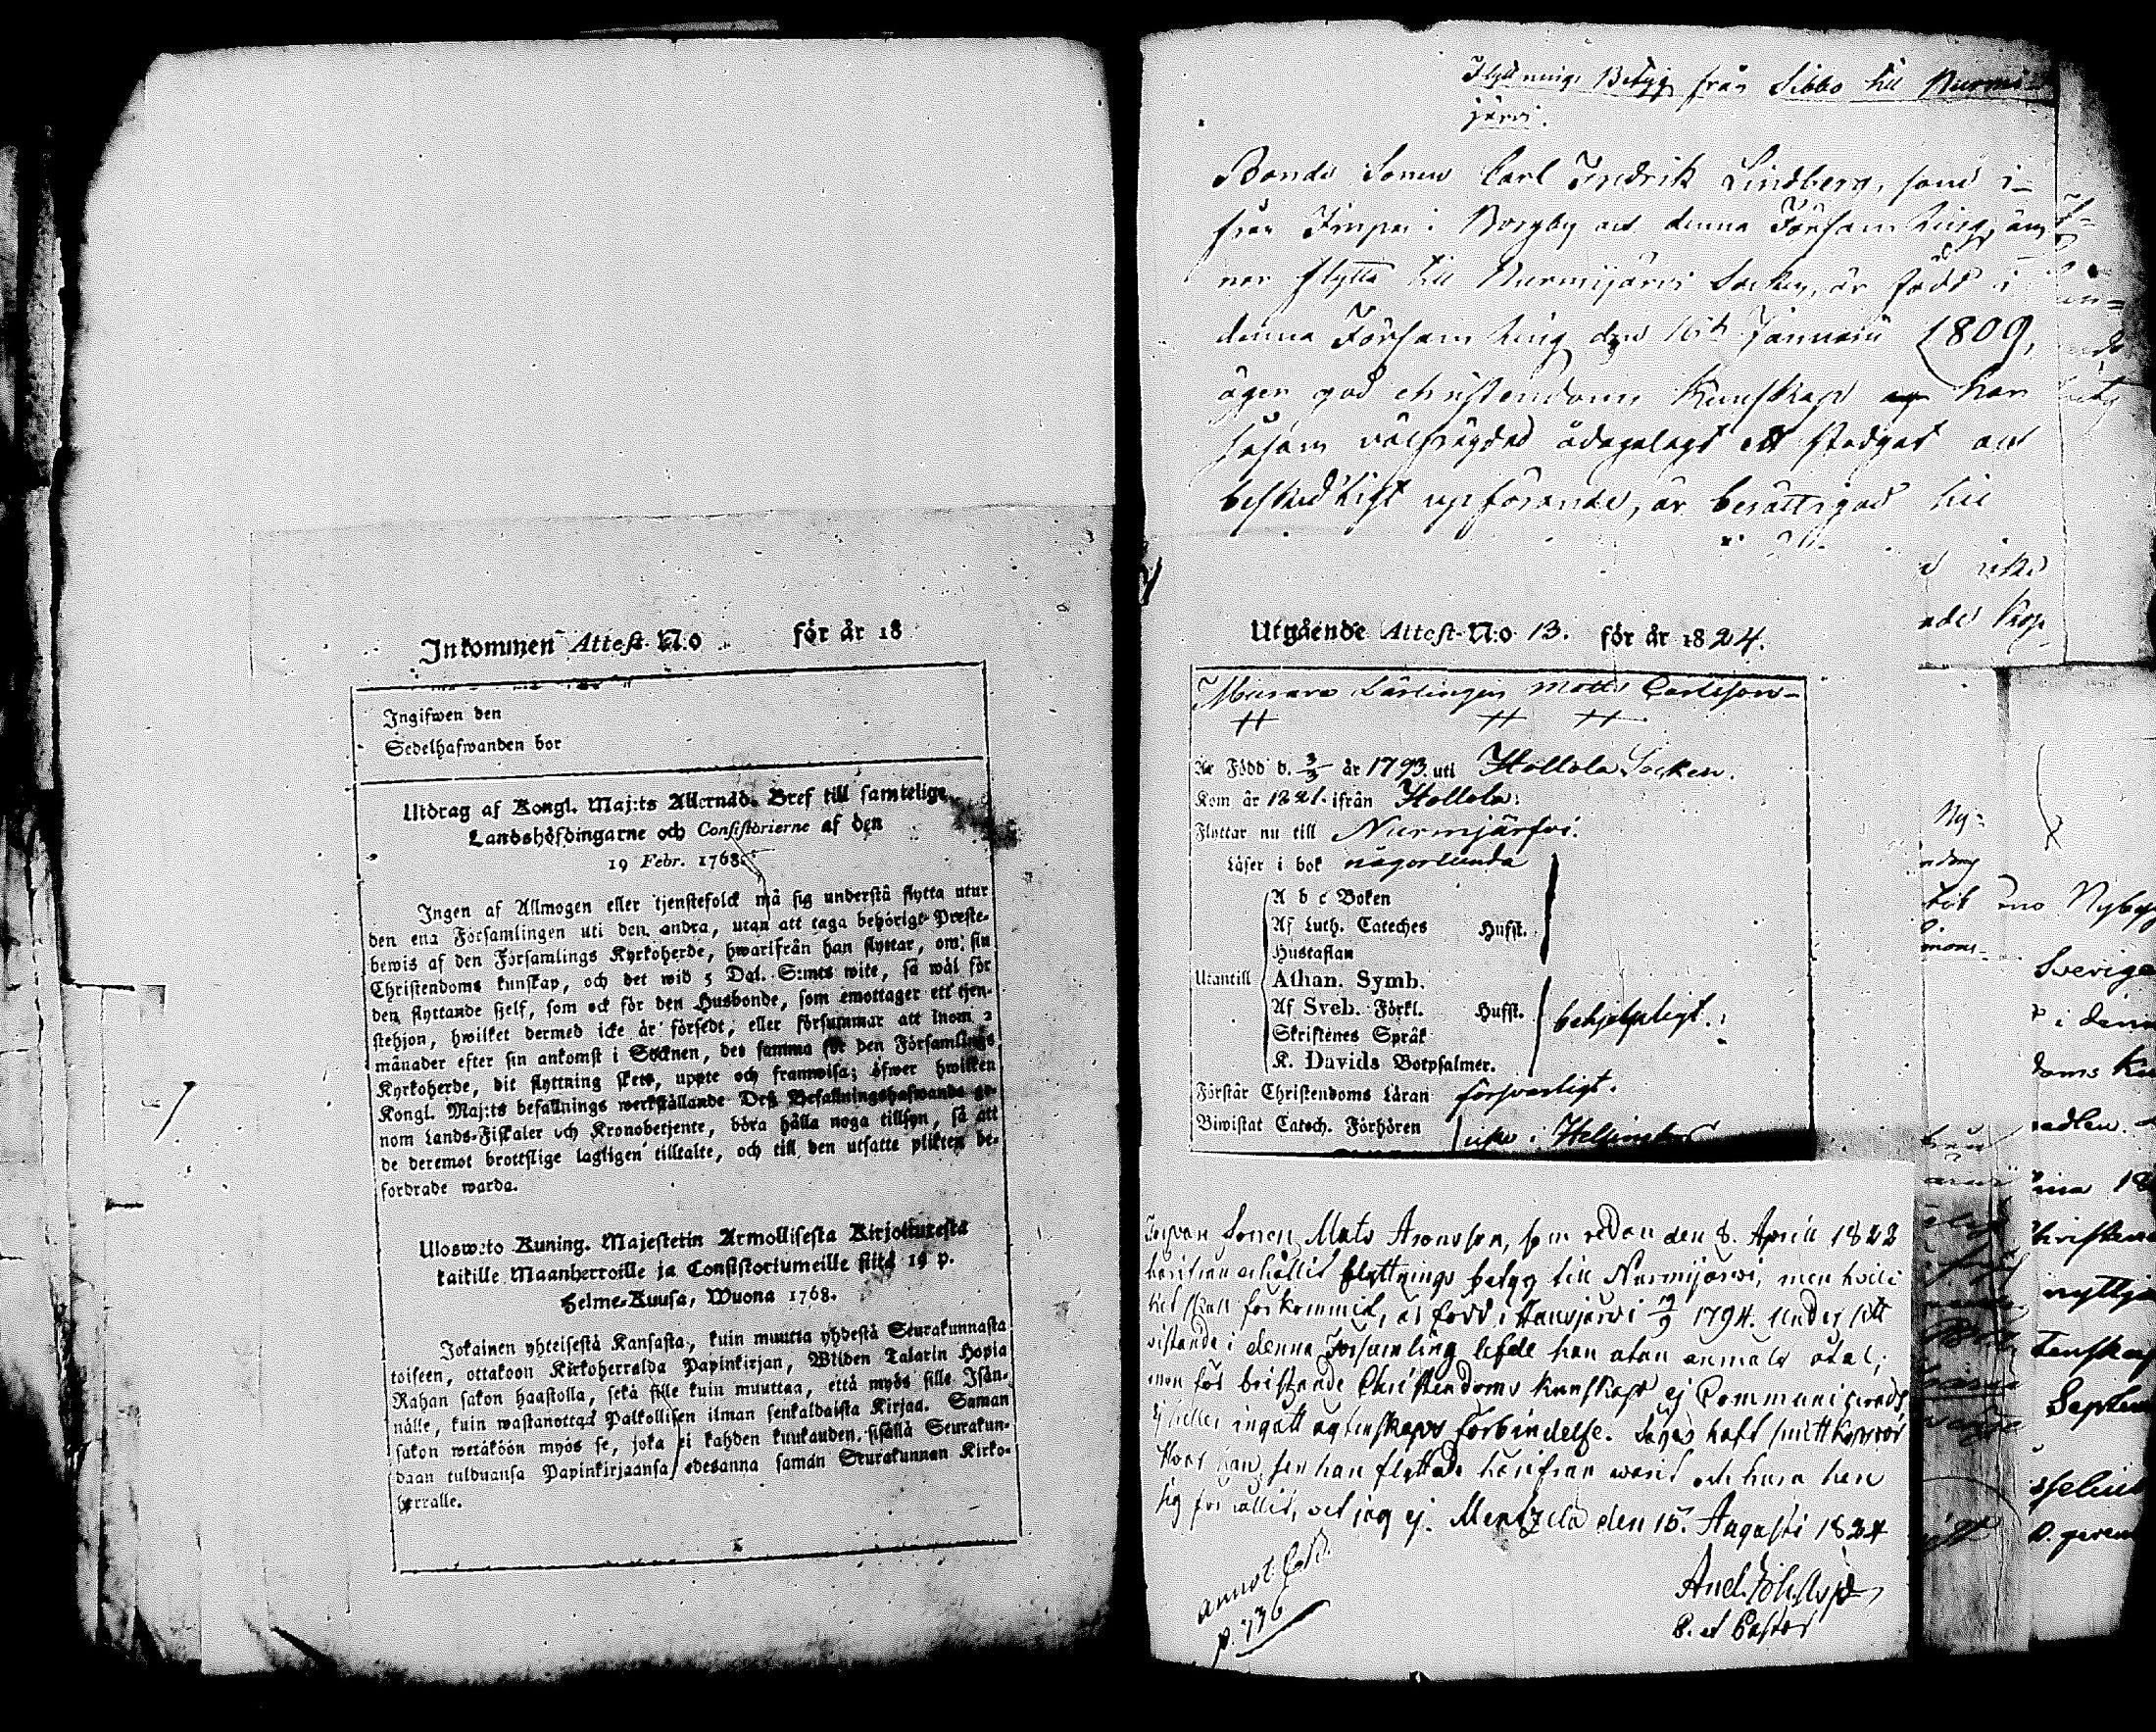 Inkommen Attest N:o för år 18
Ingifwen den
Sedelhafwanden bor
Utdrag af Kongl. Maj:ts Allernåd. Bref till samtelige
Landshöfdingarne och Consistorierne af den
19 Febr. 1768.
Ingen af Allmogen eller tjenstefolck må sig understå flytta utur
den ena Församlingen uti den andra, utan att taga behörigt Preste-
bewis af den Församlings Kyrkoherde, hwarifrån han flyttar, om sin
Christendoms kunskap, och det wid 5 Dal. S:mts wite, så wäl för
den flyttande sjelf, som ock för den Husbonde, som emottager ett tjen-
stehjon, hwilket dermed icke är försedt, eller försummar att inom 2
månader efter sin ankomst i Socknen, det samma för den Församlings
Kyrkoherde, dit flyttning skett, uppte och framwisa; öfwer hwilken
Kongl. Maj:ts befallnings werkställande Des Befallningshafwande ge-
nom Lands-Fiskaler och Kronobetjente, böra hålla noga tillsyn, så att
de deremot brottslige lagligen tilltalte, och till den utsatte plikten be-
fordrade warda.
Ulosw:to Kuning. Majestetin Armollisesta Kirjoituresta
kaikille Maanherroille ja Consistoriumeille siitä 19 p.
Helme-Kuusa, Wuona 1768.
Jokainen yhteisestä Kansasta, kuin muutta yhdestä Seurakunnasta
toiseen, ottakoon Kirkoherralda Papinkirjan, Wiiden Talarin Hopia
Rahan sakon haastolla, sekä sille kuin muuttaa, että myös sille Isän-
nälle, kuin wastanottaa Palkollisen ilman senkaldaista Kirjaa. Saman
sakon wetäköön myös se, joka ei kahden kuukauden sisällä Seurakun-
daan tulduansa Papinkirjaansa edesanna saman Seurakunnan Kirko-
herralle.
Flyttnings Betyg från Sibbo till Nurmi-
järvi.
Bonde Sonen Carl Fredrik Lindberg, som i-
från Borgby och denna Församling, äm-
nar flytta till Nurmijärvi Socken, är född i
denna Församling den 16de Januarii 1809,
äger god christendoms Kunskap har
såsom välfrägdad ådagalagt ett stadgat och
beskedligt upförande, är berättigad till
Utgående Attest N:o 13. för år 1824.
Murare Lärlingen Matts Carlsson
Är Född d. 3/3 år 1793. uti Hollola Socken.
Kom år 1821. ifrån Hollola.
Flyttar nu till Nurmjärfvi.
Läser i bok någorlunda
A b c Boken
Af Luth. Cateches Husst.
Hustaflan
Utantill Athan. Symb.
Af Sveb. Förkl. Husst. behjelpligt.
Skriftenes Språk
K. Davids Botpsalmer.
Förstår Christendoms Läran försvarligt.
Biwistat Catech. Förhören
Sonen Mats Aronsson, som redan den 8. April 1822
härifrån erhållit flyttnings betyg till Nurmijärvi, men hvil-
ket skall förkommit, är född i Hausjärvi 1794. Under sitt
vistande i denna Församling lefde han utan anmält åtal;
men för bristande Christendoms kunskap ej Communicerad,
ej heller ingått ägtenskaps förbindelse. Säges haft smittkoppor
Hvar han, sen han flyttade härifrån warit och huru han
sig förhållit, vet jag ej. Mentzela den 15. Augusti 1824
p. 736
C. et Pastor
Ny-
Nyby
Sverige
i denn
doms
Christen
nyttja
Septem